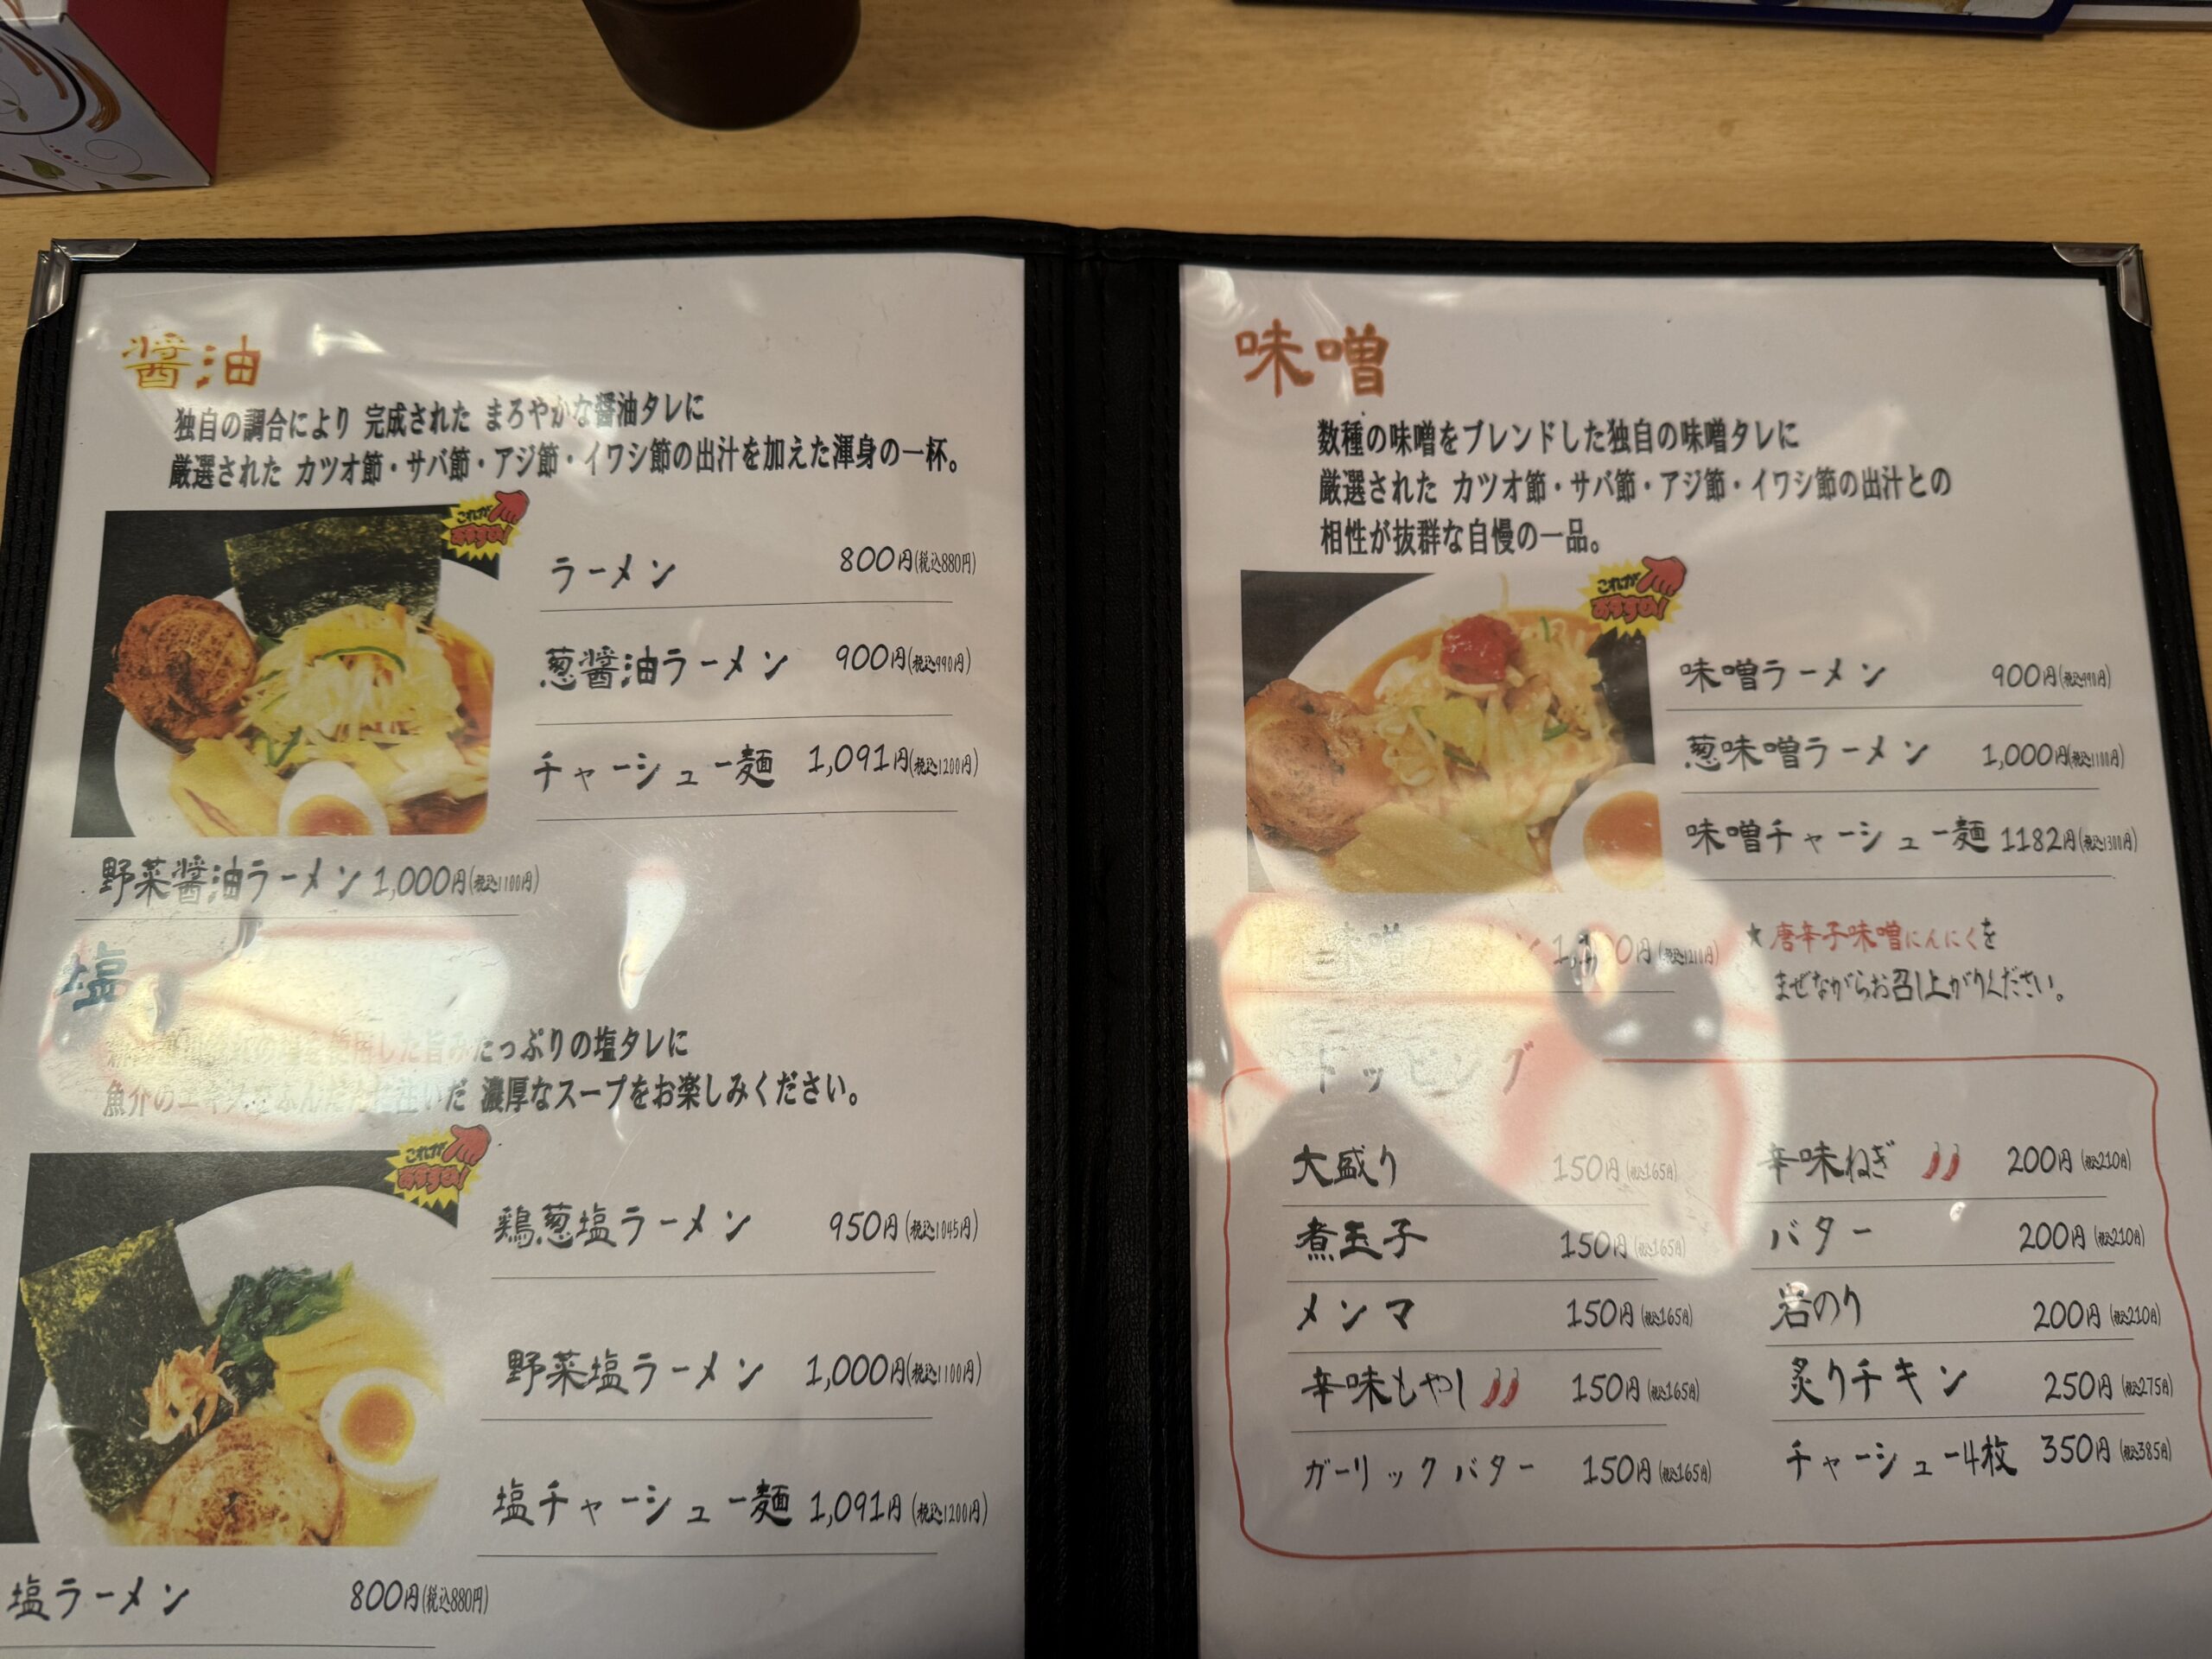 醤油
独自の調合により 完成された まろやかな醤油タレに
厳選された カツオ節・サバ節・アジ節・イワシ節の出汁を加えた渾身の一杯。
これが
おすすめ!
ラーメン 800円(税込880円)
葱醤油ラーメン 900円(税込990円)
チャーシュー麺 1,091円(税込1200円)
野菜醤油ラーメン 1,000円(税込1100円)
塩
した旨みたっぷりの塩タレに
魚介のエキスをふんだんに注いだ 濃厚なスープをお楽しみください。
これが
おすすめ!
鶏葱塩ラーメン 950円(税込1045円)
野菜塩ラーメン 1,000円(税込1100円)
塩チャーシュー麺 1,091円(税込1200円)
塩ラーメン 800円(税込880円)
味噌
数種の味噌をブレンドした独自の味噌タレに
厳選された カツオ節・サバ節・アジ節・イワシ節の出汁との
相性が抜群な自慢の一品。
これが
おすすめ!
味噌ラーメン 900円(税込990円)
葱味噌ラーメン 1,000円(税込1100円)
味噌チャーシュー麺 1182円(税込1300円)
味噌
★唐辛子味噌にんにくを
まぜながらお召し上がりください。
トッピング
大盛り 150円(税込165円)
煮玉子 150円(税込165円)
メンマ 150円(税込165円)
辛味もやし 150円(税込165円)
ガーリックバター 150円(税込165円)
辛味ねぎ 200円(税込210円)
バター 200円(税込210円)
岩のり 200円(税込210円)
炙りチキン 250円(税込275円)
チャーシュー4枚 350円(税込385円)